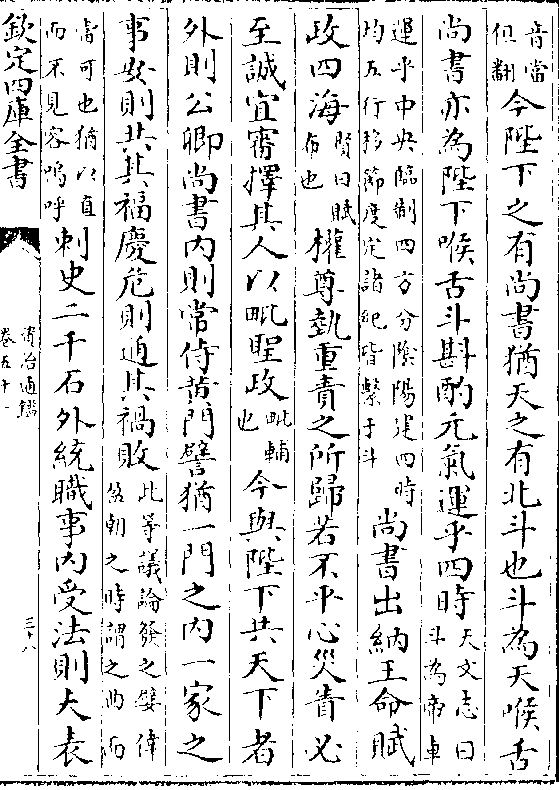 音當但翻今陛下之有尚書猶天之有北斗也斗為天喉舌
尚書亦為陛下喉舌斗斟酌元氣運乎四時天文志曰斗為帝車
運乎中央臨制四方分隂陽建四時均五行移節度定諸紀皆繫于斗尚書出納王命賦
政四海賢曰賦布也權尊埶重責之所歸若不平心災眚必
至誠宜審擇其人以毗聖政毗輔也今與陛下共天下者
外則公卿尚書内則常侍黄門譬猶一門之内一家之
事安則共其福慶危則通其禍敗此等議論發之嬖倖盈朝之時謂之曲而
當可也猶以直而不見容嗚呼刺史二千石外統職事内受法則夫表
欽定四庫全書
資治通鑑
卷五十一
三十八